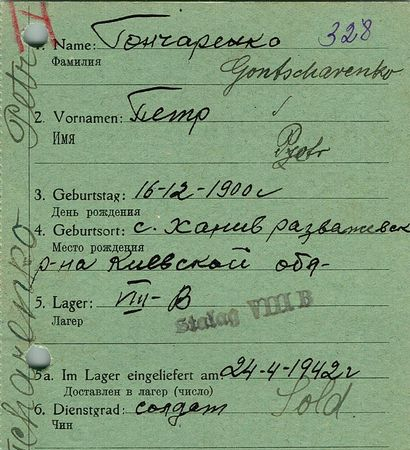 328
1. Name: Гончаренко
Фамилия
Gontscharenko
2. Vornamen: Петр
Имя
Pjotr
3. Geburtstag: 16-12-1900г
День рождения
4. Geburtsort: с. Ханив разважевск
Место рождения
р-на Киевской обл-
5. Lager: VIII-В
Лагер
Stalag VIII B
5a. Im Lager eingeliefert am: 24-4-1942г
Доставлен в лагер (число)
6. Dienstgrad: солдат
Чин
Sold.
charenko Petr